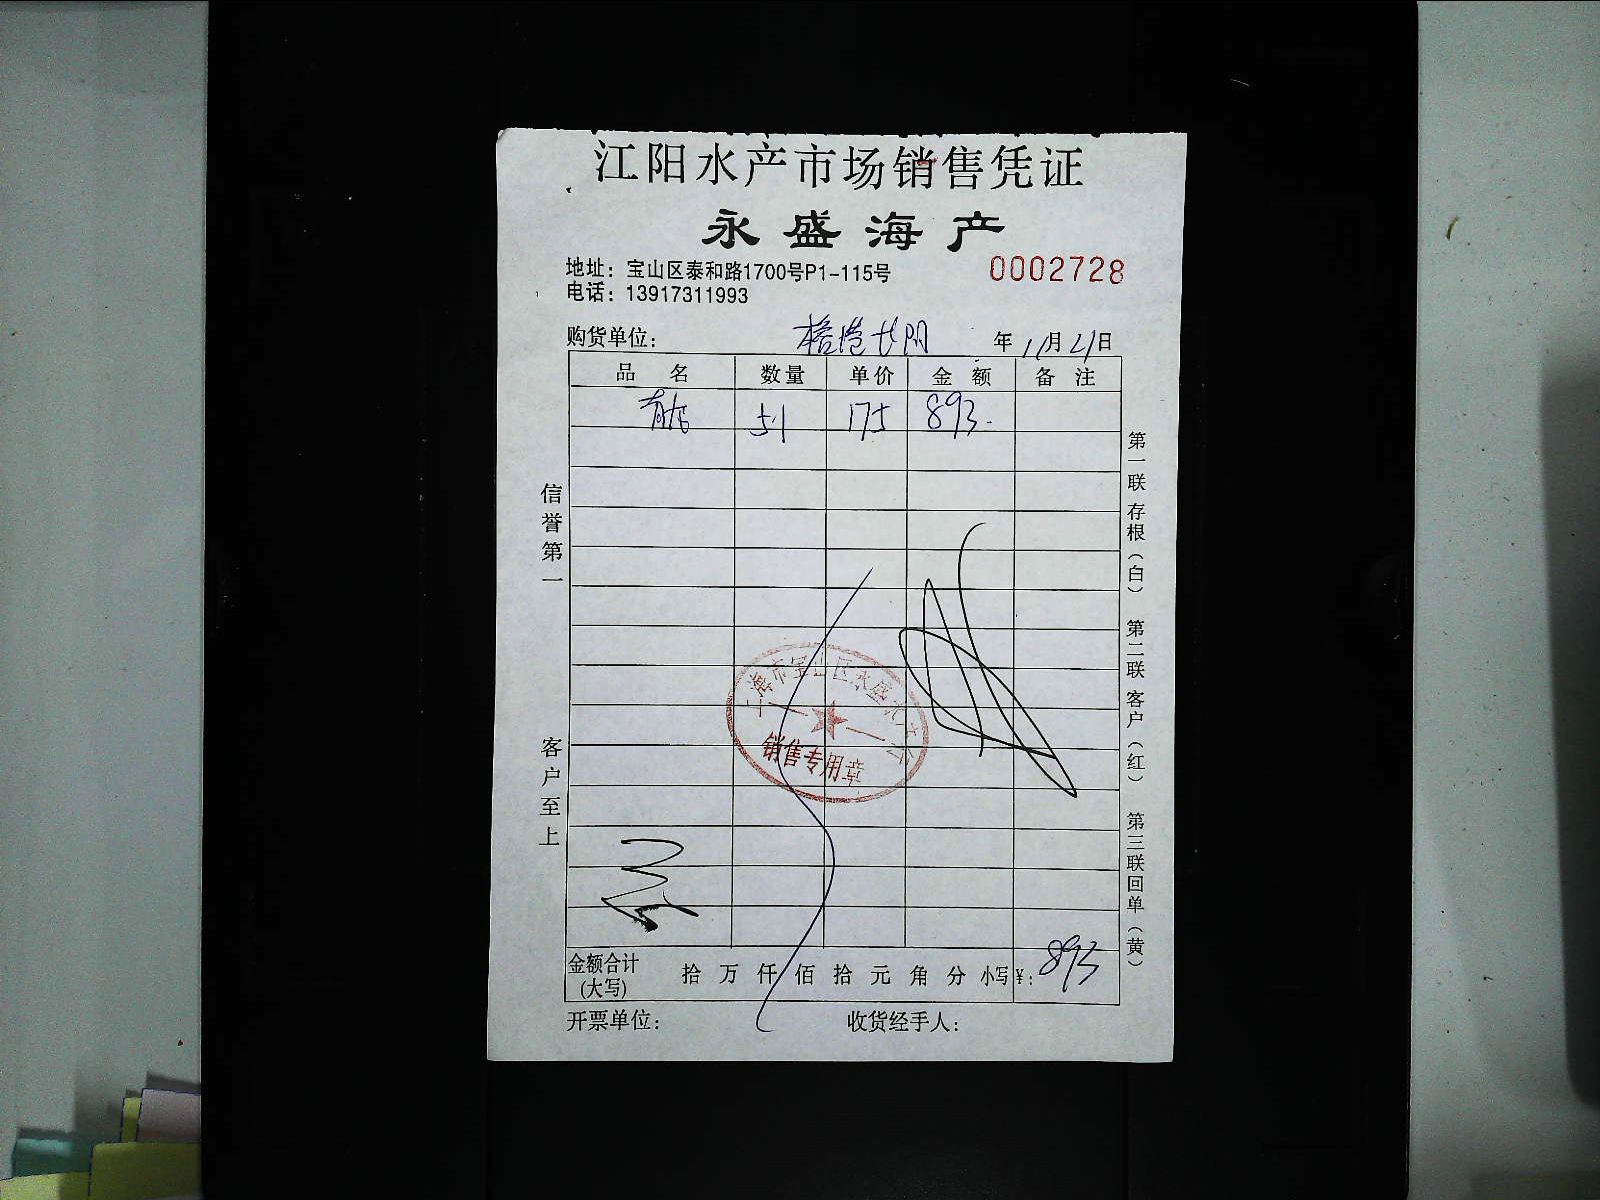 江阳水产市场销售凭证
永盛海产
地址：宝山区泰和路1700号P1-115号
0002728
电话：13917311993
购货单位： 年 11月21日
品名 数量 单价 金额 备注
51 175 893.
信誉第一
客户至上
第一联存根（白） 第二联客户（红） 第三联回单（黄）
上海市宝山区永盛水产
销售专用章
金额合计(大写) 拾 万 仟 佰 拾 元 角 分 小写¥: 893
开票单位： 收货经手人：